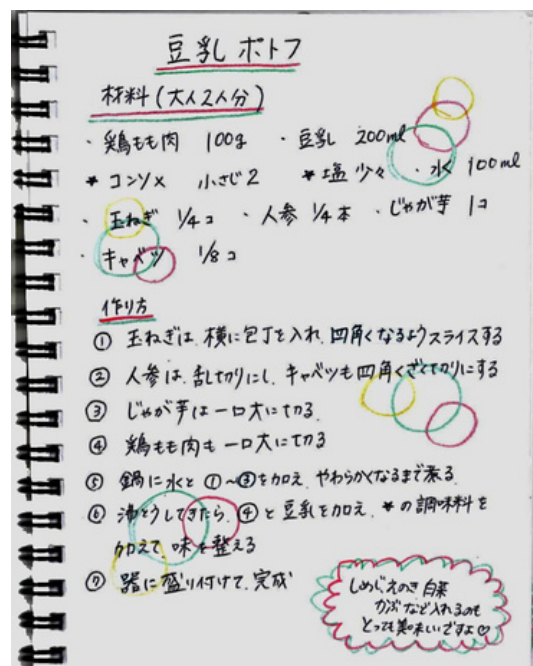 豆乳 ポトフ
材料(大人2人分)
・鶏もも肉 100g ・豆乳 200ml
* コンソメ 小さじ2 *塩 少々 ・水 100ml
・玉ねぎ 1/4コ ・人参 1/4本 ・じゃが芋 1コ
・キャベツ 1/8コ
作り方
① 玉ねぎは、横に包丁を入れ、四角くなるようスライスする
② 人参は、乱切りにし、キャベツも四角くざく切りにする
③ じゃが芋は一口大に切る
④ 鶏もも肉も一口大に切る
⑤ 鍋に水と①~③を加え、やわらかくなるまで煮る
⑥ 沸とうしてきたら、④と豆乳を加え、*の調味料を
加えて、味を整える
⑦ 器に盛り付けて、完成
しめじ、えのき 白菜
かぶなど入れるのも
とっても美味しいですよ♡